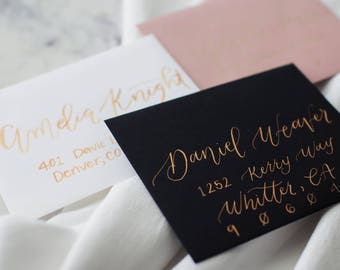 Amelia Knight
401 Davis
Denver, CO
Daniel Weaver
1252 Kerry Way
Whitter, CA
9 0 6 0 4